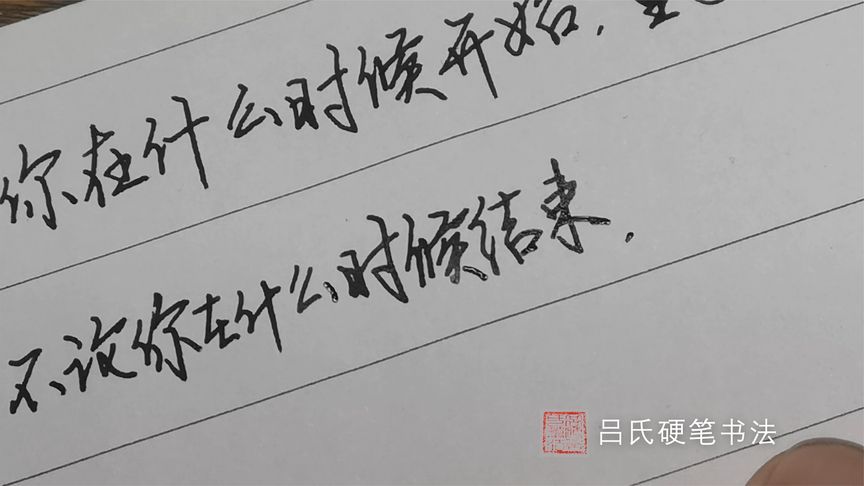 你在什么时候开始,
不论你在什么时候结束.
吕氏硬笔书法